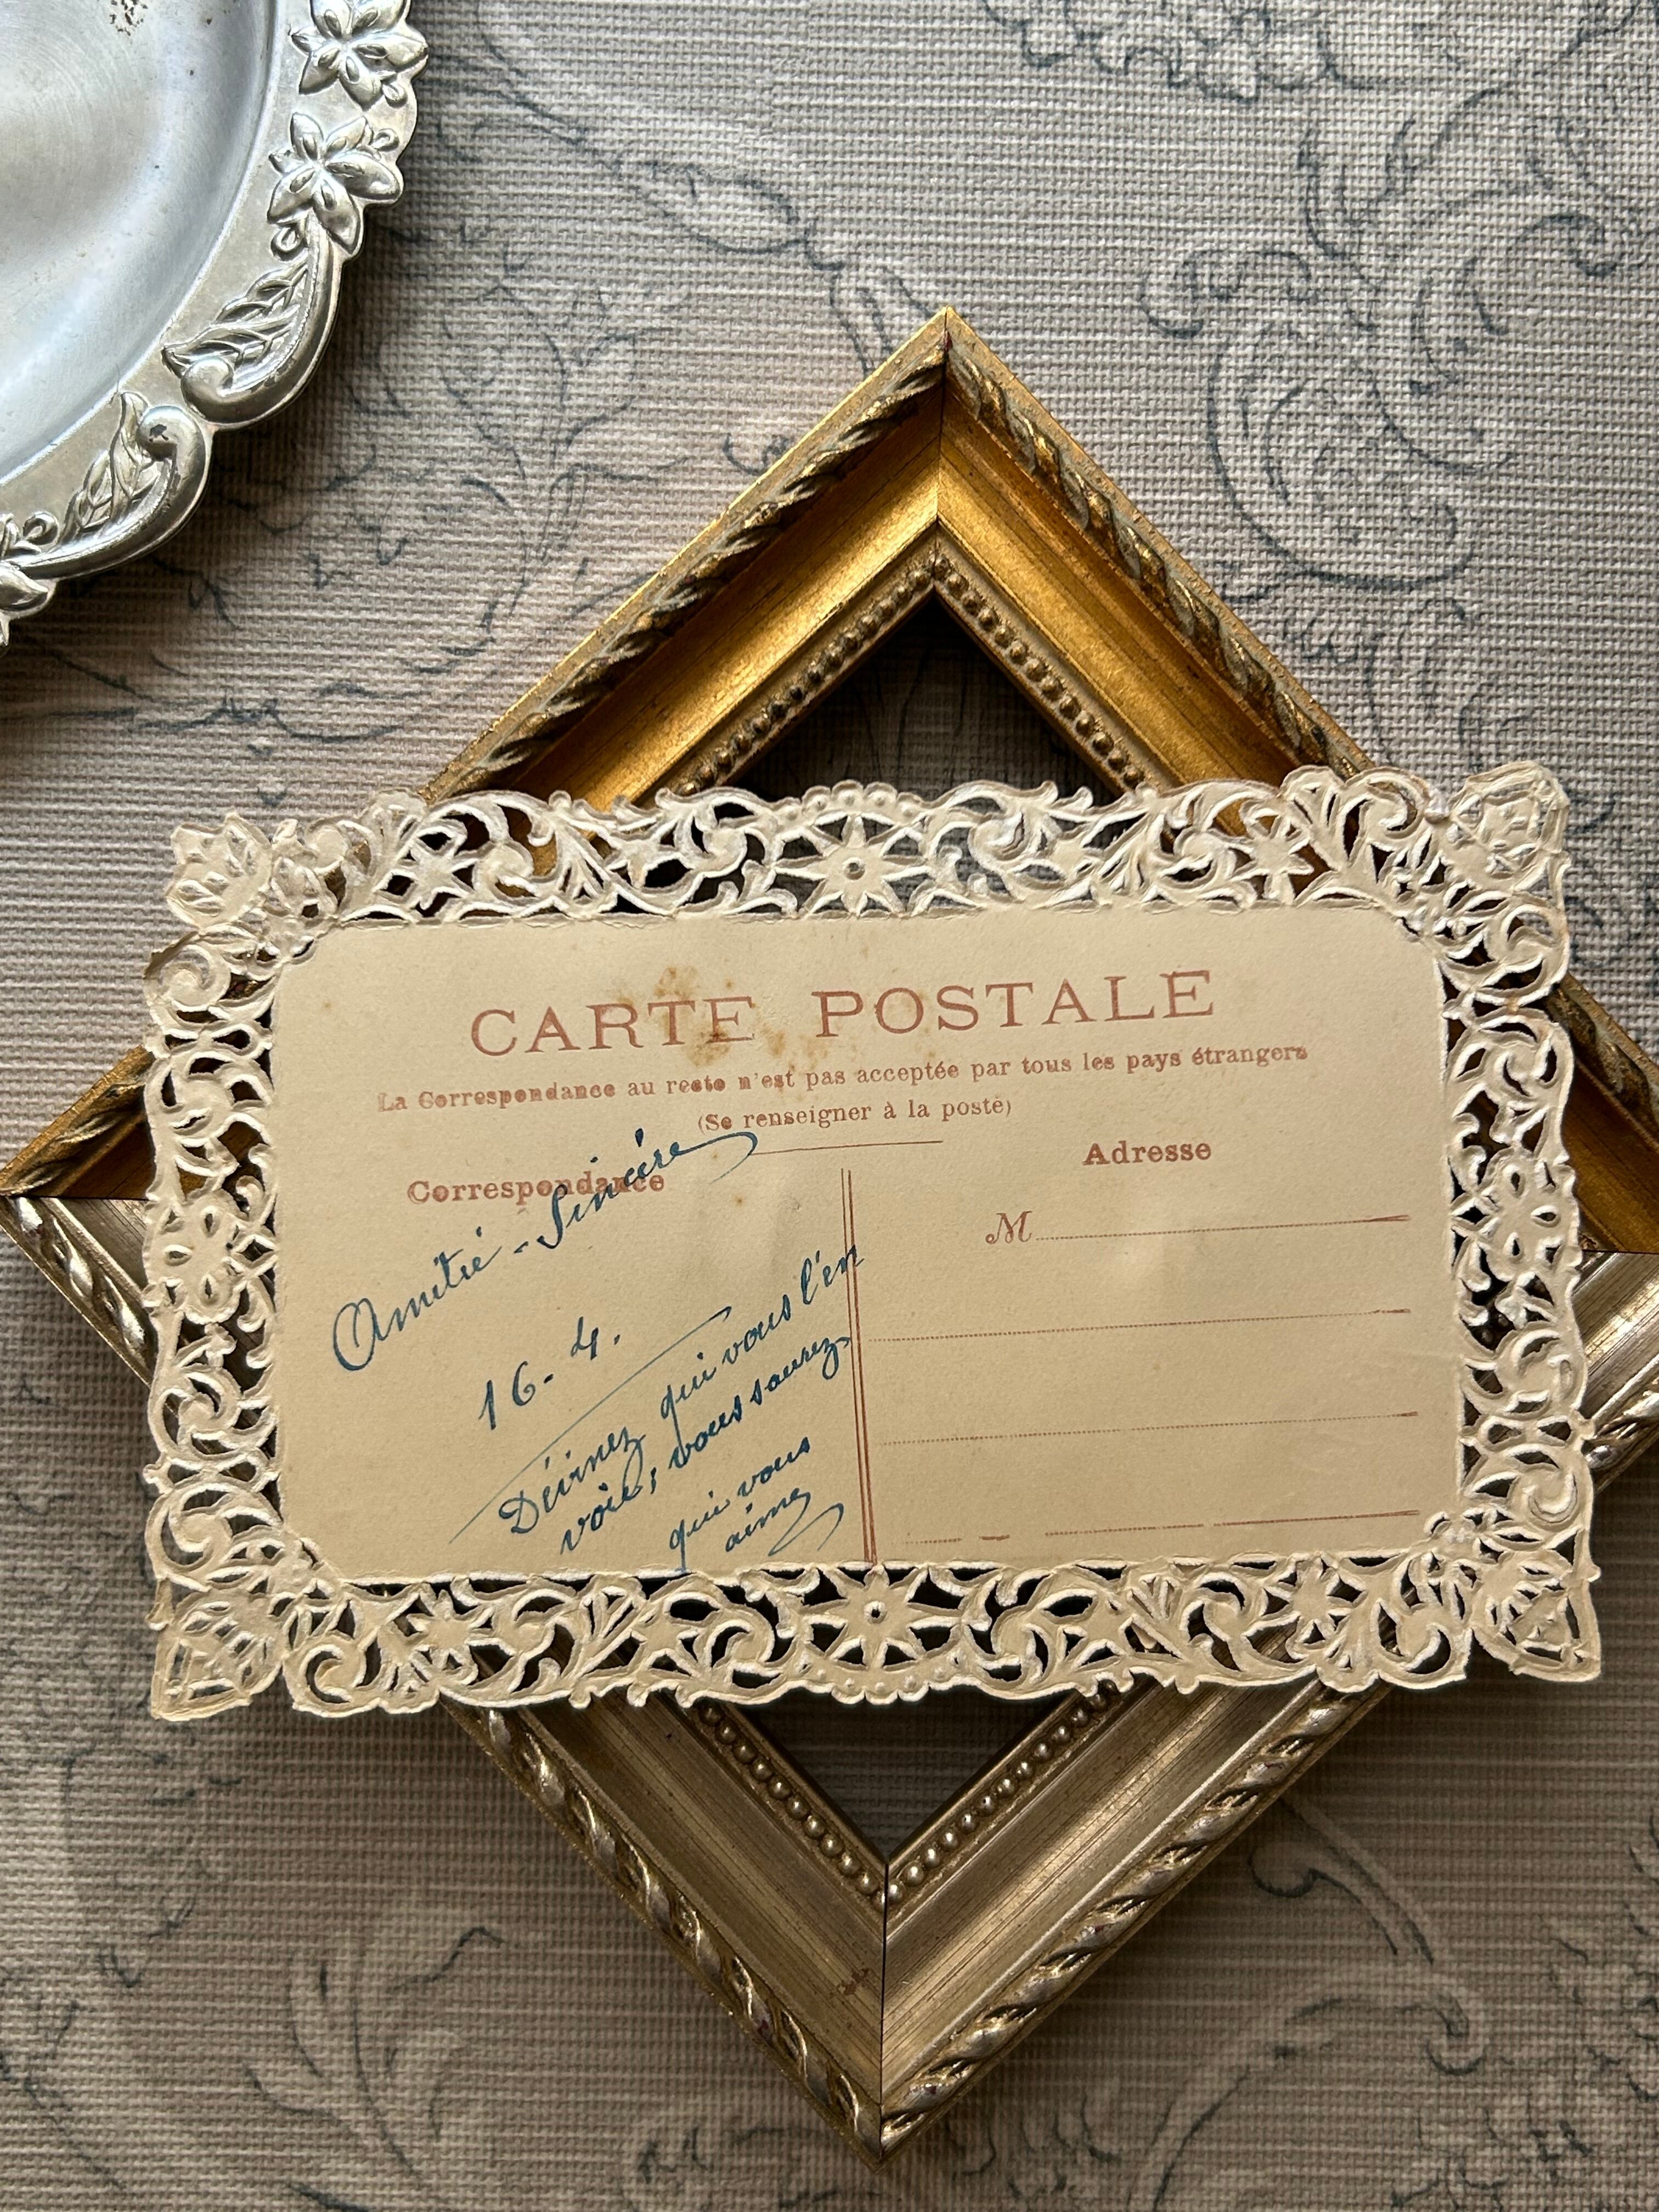 CARTE POSTALE
La Correspondance au recto n'est pas acceptée par tous les pays étrangers
(Se renseigner à la poste)
Correspondance
Adresse
M
Amitié - Sincère
16-4.
Dévinez qui vous l'en
voie, vous saurez
qui vous
aime